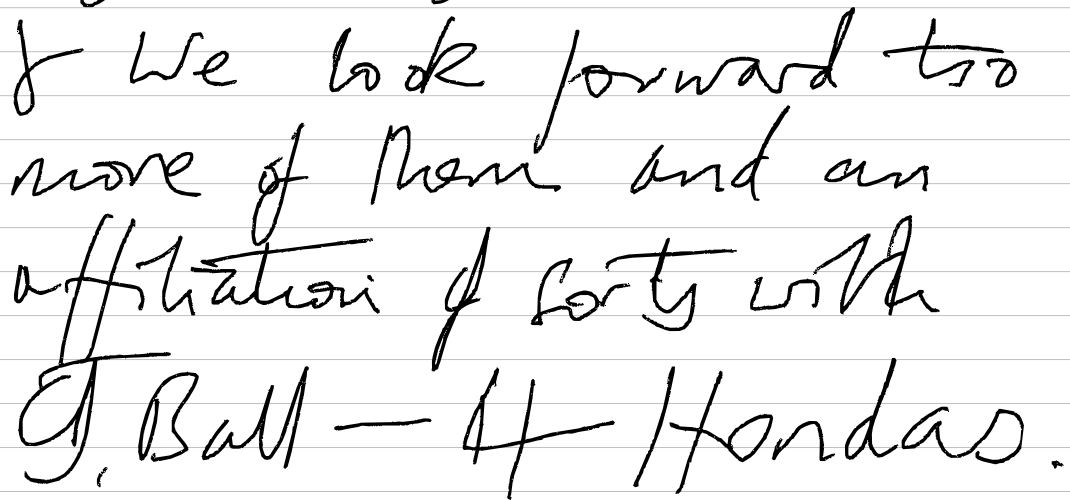 & We look forward too
more of them and an
affiliation of sorts with
G. Ball – 4 Hondas.